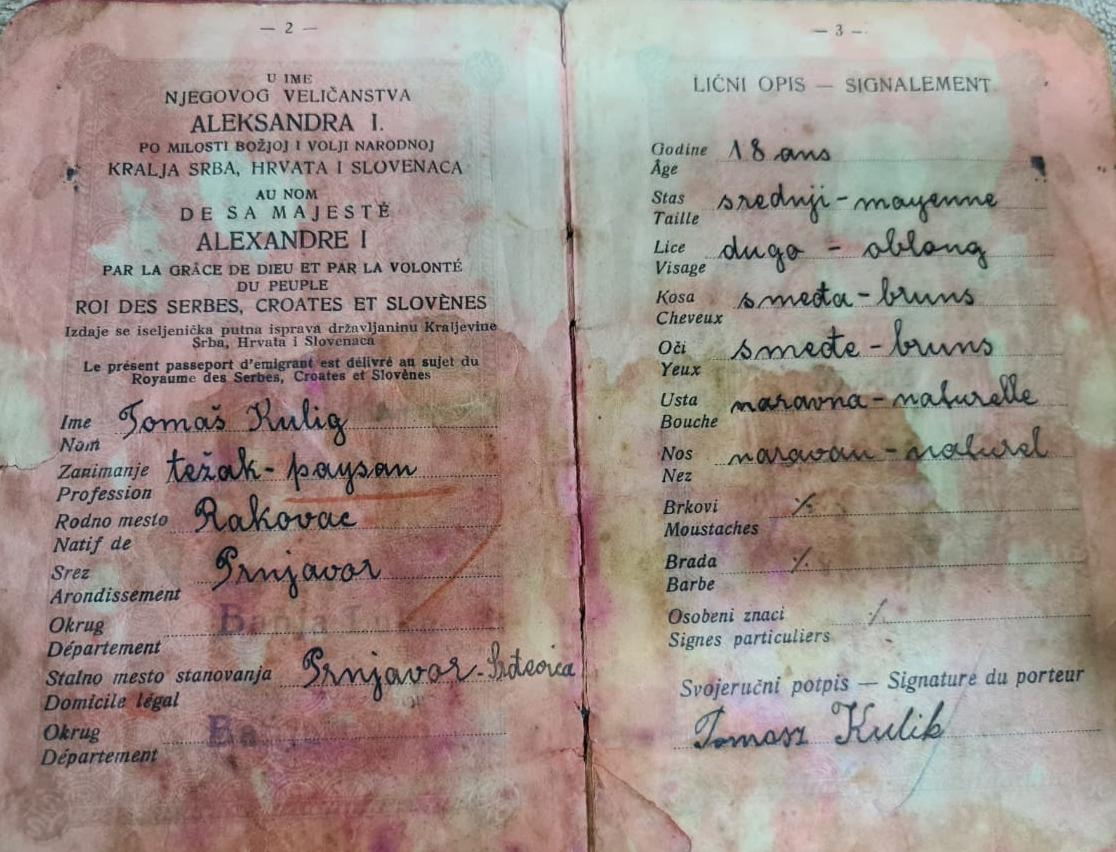 — 2 —
U IME
NJEGOVOG VELIČANSTVA
ALEKSANDRA I.
PO MILOSTI BOŽJOJ I VOLJI NARODNOJ
KRALJA SRBA, HRVATA I SLOVENACA
AU NOM
DE SA MAJESTÉ
ALEXANDRE I
PAR LA GRÂCE DE DIEU ET PAR LA VOLONTÉ
DU PEUPLE
ROI DES SERBES, CROATES ET SLOVÈNES
Izdaje se iseljenička putna isprava državljaninu Kraljevine
Srba, Hrvata i Slovenaca
Le présent passeport d'émigrant est délivré au sujet du
Royaume des Serbes, Croates et Slovènes
Ime Tomaš Kulig
Nom
Zanimanje težak - paysan
Profession
Rodno mesto Rakovac
Natif de
Srez Prnjavor
Arondissement
Okrug Banja Luka
Département
Stalno mesto stanovanja Prnjavor -
Domicile légal
Okrug
Département
— 3 —
LIČNI OPIS — SIGNALEMENT
Godine 18 ans
Âge
Stas srednji - mayenne
Taille
Lice dugo - oblong
Visage
Kosa smeđa - bruns
Cheveux
Oči smeđe - bruns
Yeux
Usta naravna - naturelle
Bouche
Nos naravan - naturel
Nez
Brkovi ⁒
Moustaches
Brada ⁒
Barbe
Osobeni znaci ⁒
Signes particuliers
Svojeručni potpis — Signature du porteur
Tomasz Kulik